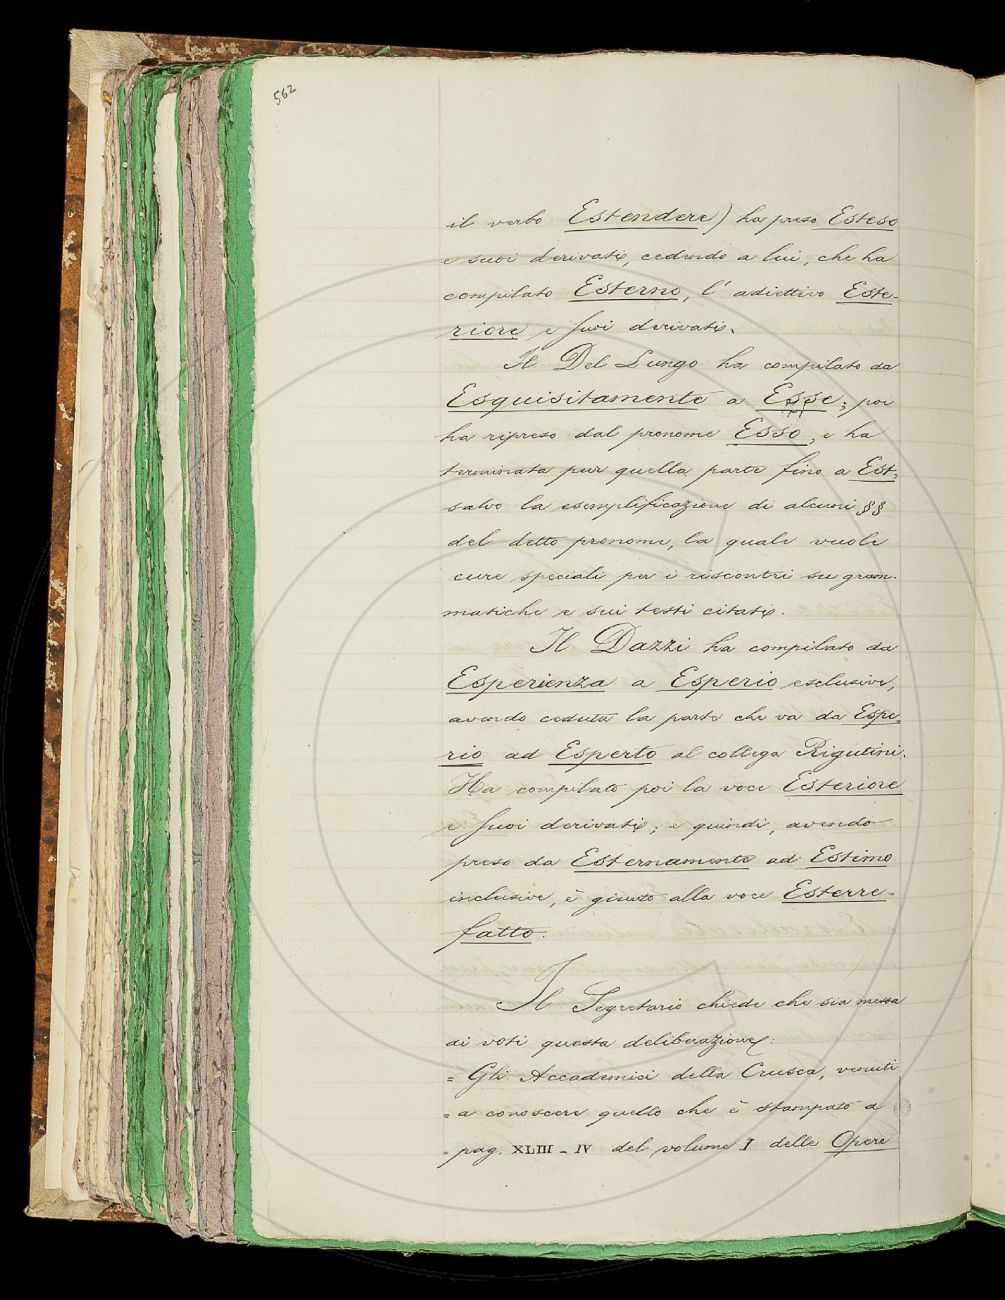 562
il verbo Estendere) ha preso Esteso
e suoi derivati, cedendo a lui, che ha
compilato Esterno, l'adiettivo Este-
riore e suoi derivati.
Il Del Lungo ha compilato da
Esquisitamente a Esse; poi
ha ripreso dal pronome Esso, e ha
terminata pur quella parte fino a Est.
salvo la esemplificazione di alcuni §§
del detto pronome, la quale vuole
cure speciali per i riscontri su gram-
matiche e sui testi citati.
Il Dazzi ha compilato da
Esperienza a Esperio esclusive,
avendo ceduta la parte che va da Espe-
rio ad Esperto al collega Rigutini.
Ha compilato poi la voce Esteriore
e suoi derivati; e quindi, avendo
preso da Esternamente ad Estimo
inclusive, è giunto alla voce Esterre-
fatto.
Il Segretario chiede che sia messa
ai voti questa deliberazione:
= Gli Accademici della Crusca, venuti
= a conoscere quello che è stampato a
= pag. XLIII - IV del volume I delle Opere